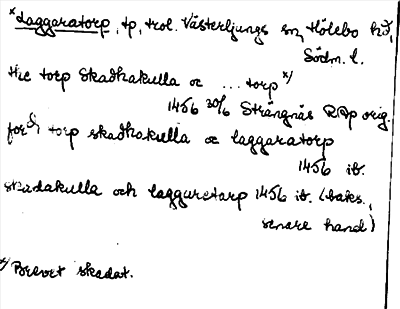 *Laggaratorp, tp, trol. Västerljungs sn, Hölebo hd,
Södm. l.
the torp Skadhakulla oc ... torp x/
1456 30/6 Strängnäs RAp orig.
for:de torp skadhakulla oc laggaratorp
1456 ib.
skadakulla och laggaretarp 1456 ib. (baks.,
senare hand)
x/ Brevet skadat.